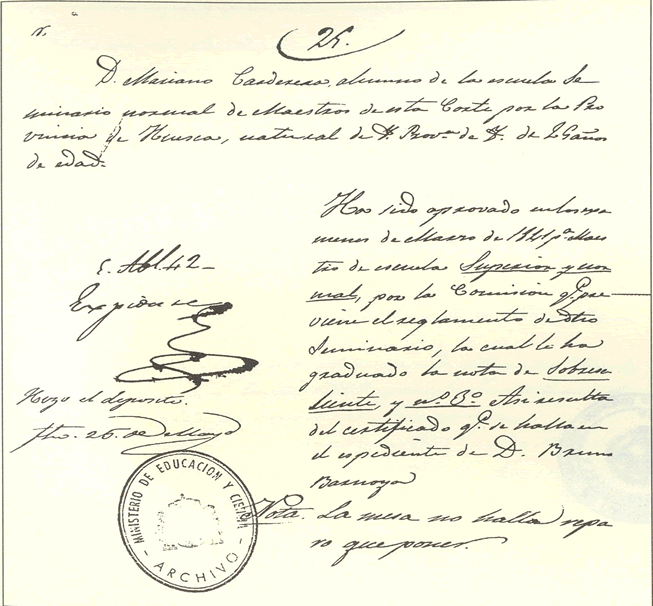 25.
D. Mariano Carderera, alumno de la escuela Se
minario normal de Maestros de esta Corte por la Pro
vincia de Huesca, natural de Y. Prova de Y. de 25 años
de edad.
Ha sido aprovado en los exa
menes de Marzo de 1841 pa. Maes
tro de escuela Superior y nor
mal, por la Comision qe. pre
viene el reglamento de dho
Seminario, la cual le ha
graduado la nota de Sobresa
liente, y no. 3o. Asi resulta
del certificado qe. se halla en
el espediente de D. Bruno
Barnoya
Nota. La mesa no halla repa
ro que poner.
Abl. 42
Expidase
Hizo el deposito.
fho. 25. de Mayo
MINISTERIO DE EDUCACION Y CIENCIA
- ARCHIVO -